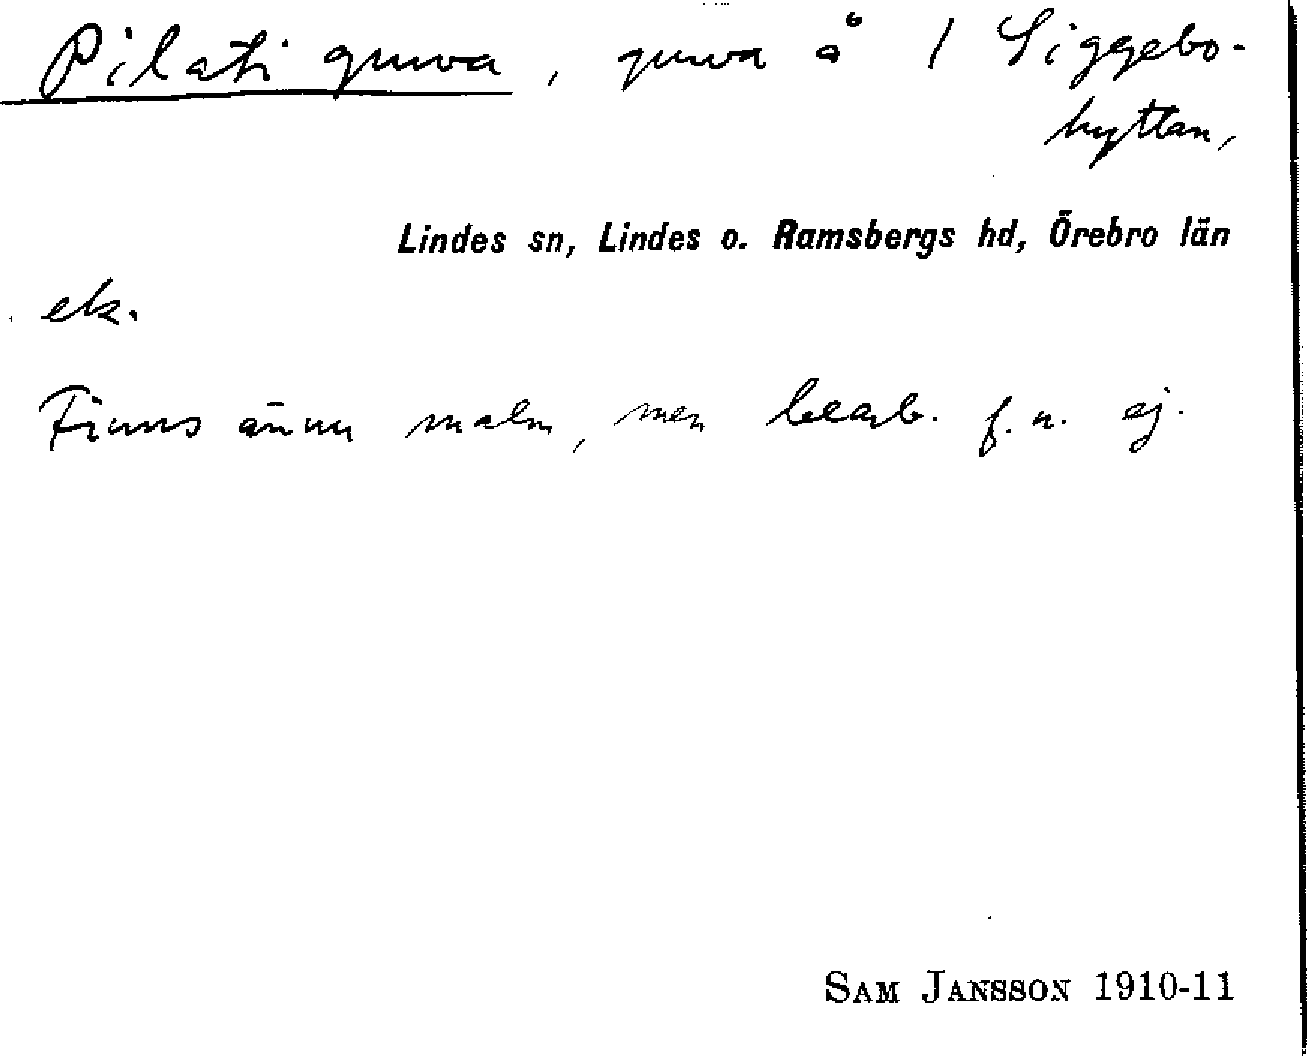 Pilati gruva, gruva å 1 Siggebo-
hyttan,
Lindes sn, Lindes o. Ramsbergs hd, Örebro län
ek.
Finns ännu malm, men bearb. f.n. ej.
SAM JANSSON 1910-11